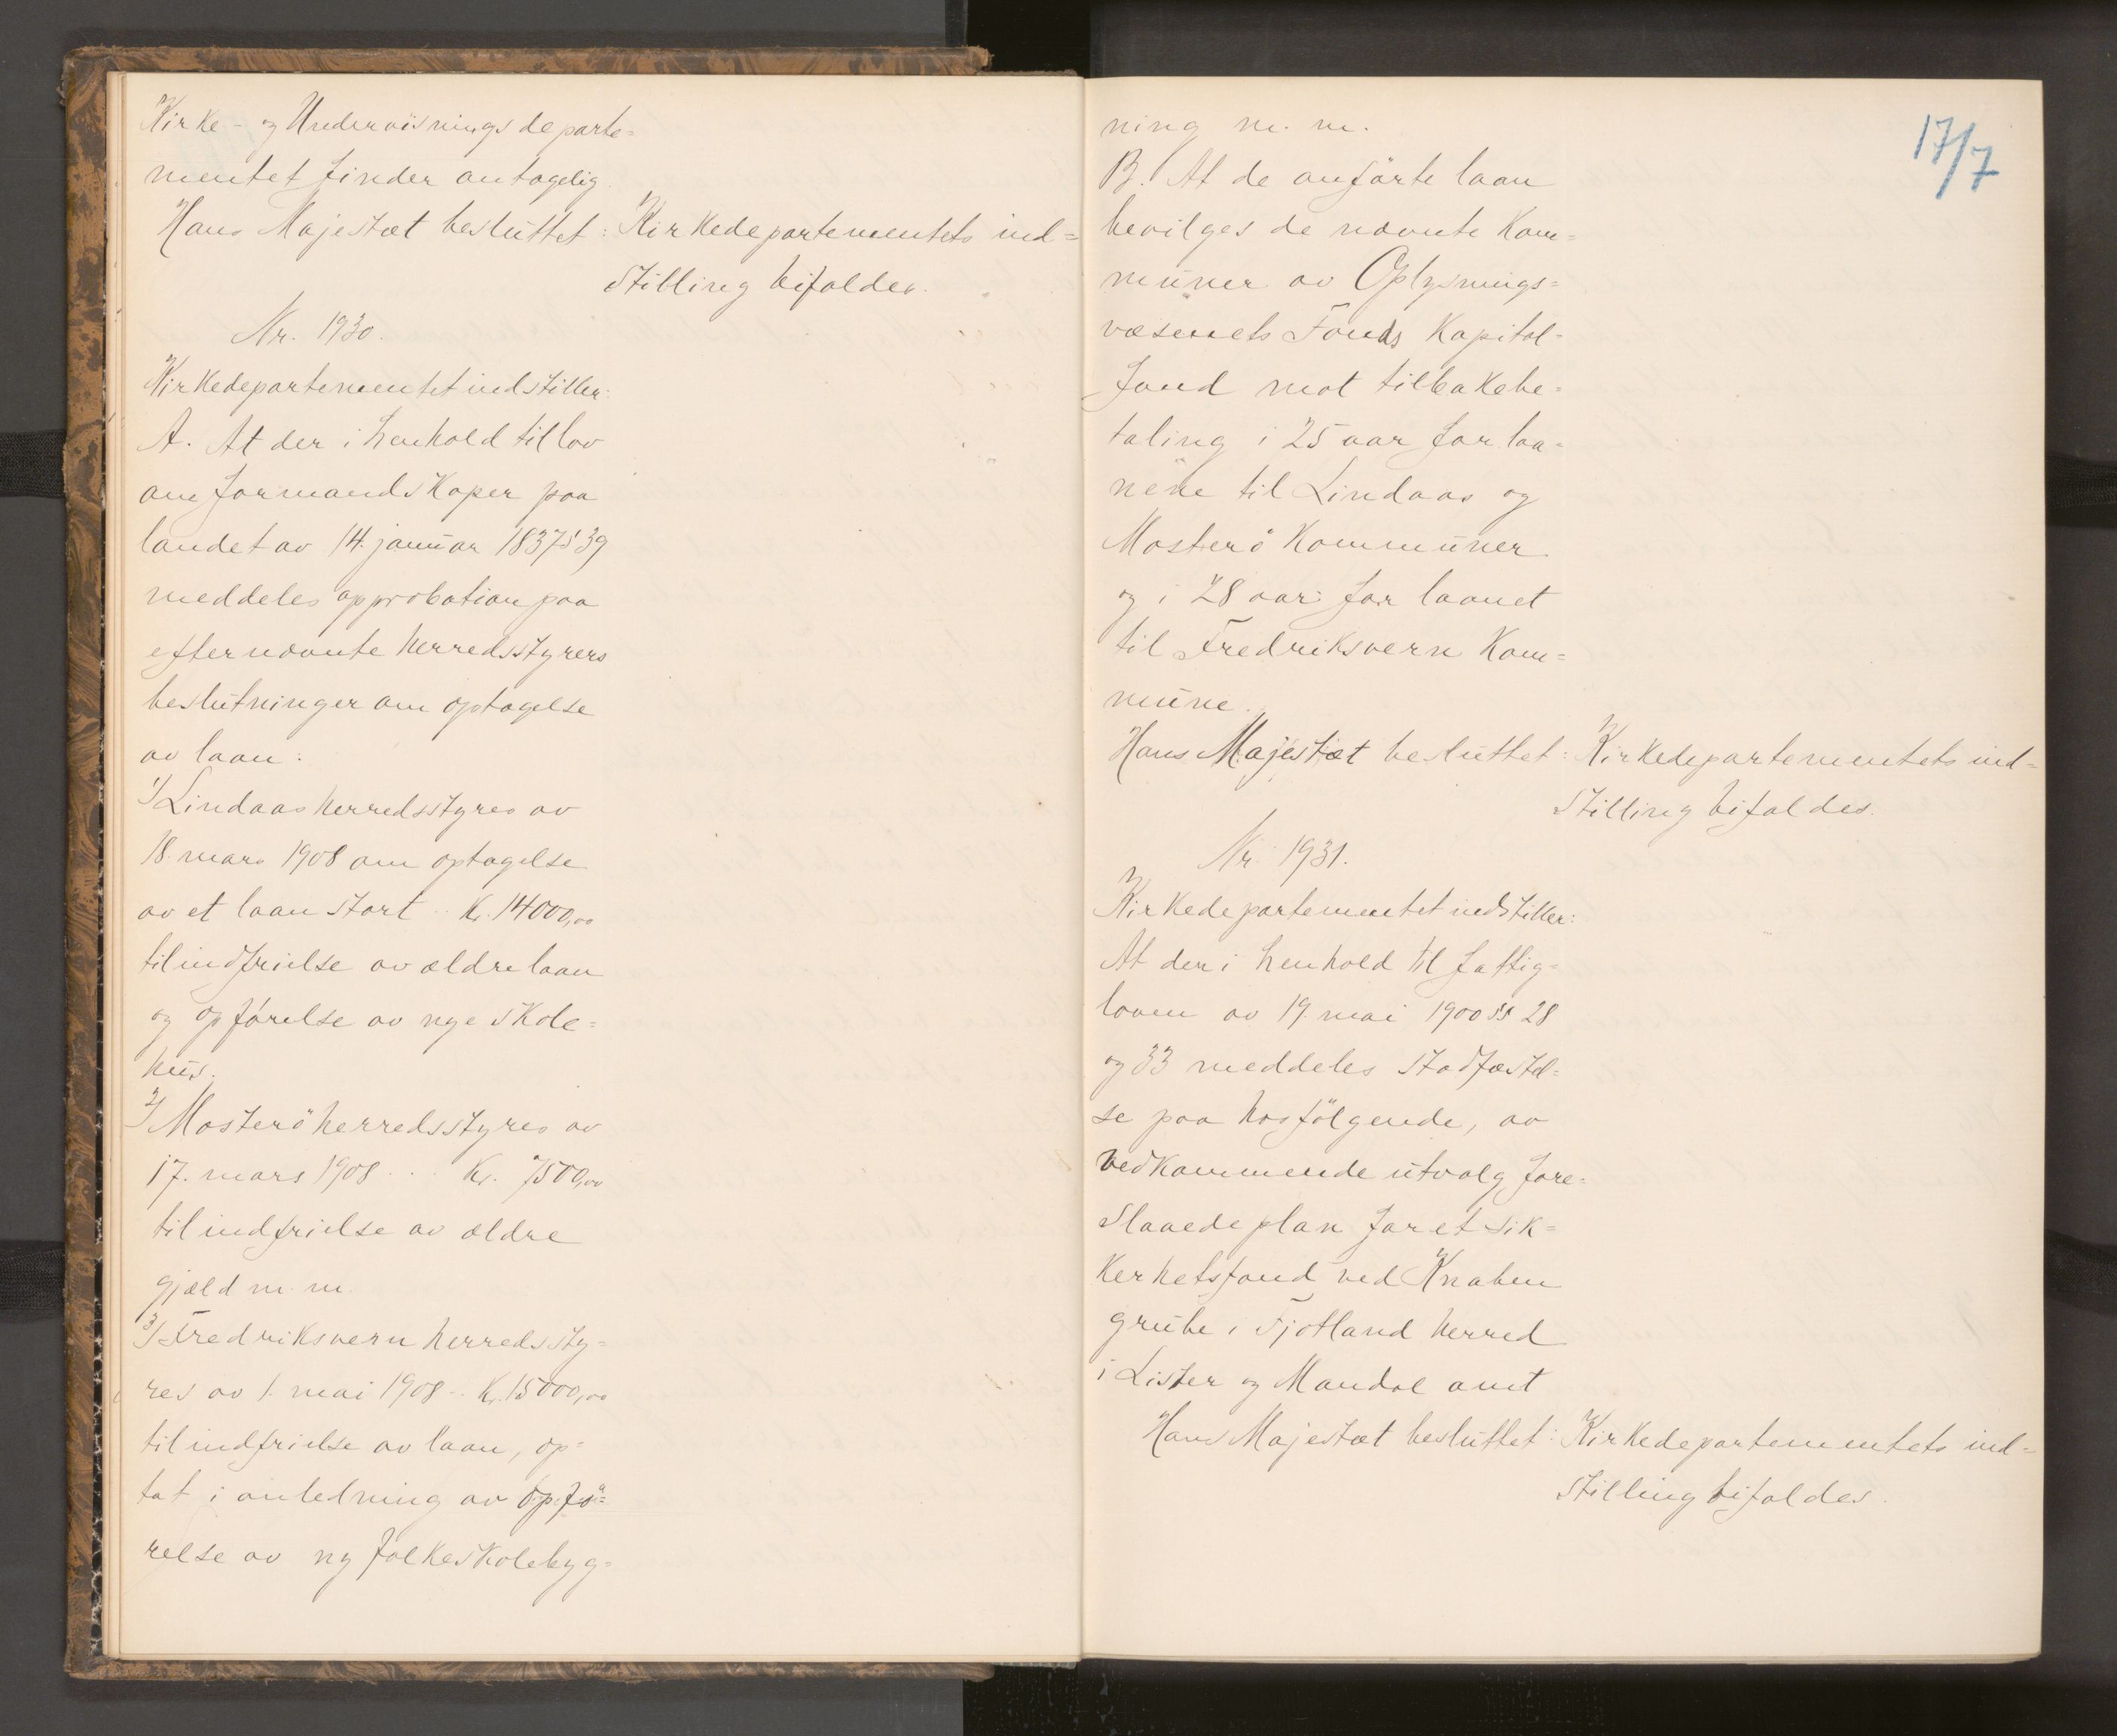 Kirke- og Undervisningsdeparte=
mentet finder antagelig.
Hans Majestæt besluttet: Kirkedepartementets ind=
stilling bifaldes.
Nr. 1930.
Kirkedepartementet indstiller:
A. At der i henhold til lov
om formandskaper paa
landet av 14. januar 1837 § 39
meddeles approbation paa
efternævnte herredsstyrers
beslutninger om optagelse
av laan:
1) Lindaas herredsstyres av
18. mars 1908 om optagelse
av et laan stort .. Kr. 14000,00
til indfrielse av ældre laan
og opførelse av nye skole=
hus.
2) Mosterö herredsstyres av
17. mars 1908 ... Kr. 7500,00
til indfrielse av ældre
gjæld m. m.
3) Fredriksvern herredssty=
res av 1. mai 1908 .. Kr. 15000,00
til indfrielse av laan, op=
tat i anledning av opfö=
relse av ny folkeskolebyg=
17/7
ning m. m.
B. At de anførte laan
bevilges de nævnte kom=
muner av Oplysnings=
væsenets Fonds kapital=
fond mot tilbakebe=
taling i 25 aar for laa=
nene til Lindaas og
Mosterö kommuner
og i 28 aar for laanet
til Fredriksvern kom=
mune.
Hans Majestæt besluttet: Kirkedepartementets ind=
stilling bifaldes.
Nr. 1931.
Kirkedepartementet indstiller:
At der i henhold til fattig=
loven av 19. mai 1900 §§ 28
og 33 meddeles stadfæstel=
se paa hosfölgende, av
vedkommende utvalg fore=
slaaede plan for et sik=
kerhetsfond ved Knaben
grube i Fjotland herred
i Lister og Mandal amt
Hans Majestæt besluttet: Kirkedepartementets ind=
stilling bifaldes.